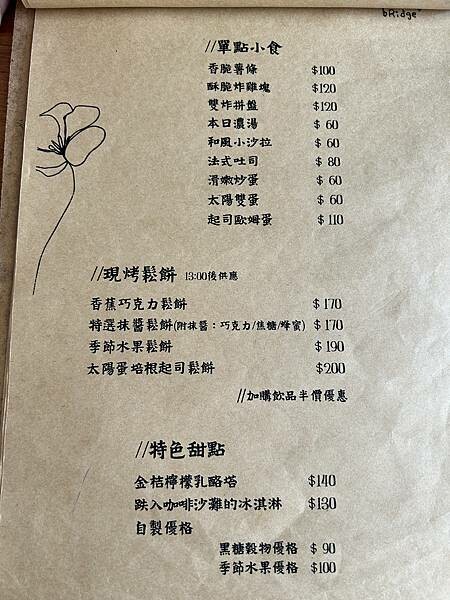 bRidge+
//單點小食
香脆薯條 $100
酥脆炸雞塊 $120
雙炸拼盤 $120
本日濃湯 $ 60
和風小沙拉 $ 60
法式吐司 $ 80
滑嫩炒蛋 $ 60
太陽雙蛋 $ 60
起司歐姆蛋 $ 110
//現烤鬆餅 13:00後供應
香蕉巧克力鬆餅 $ 170
特選抹醬鬆餅(附抹醬：巧克力/焦糖/蜂蜜) $ 170
季節水果鬆餅 $ 190
太陽蛋培根起司鬆餅 $200
//加購飲品半價優惠
//特色甜點
金桔檸檬乳酪塔 $140
跌入咖啡沙灘的冰淇淋 $130
自製優格
黑糖穀物優格 $ 90
季節水果優格 $100